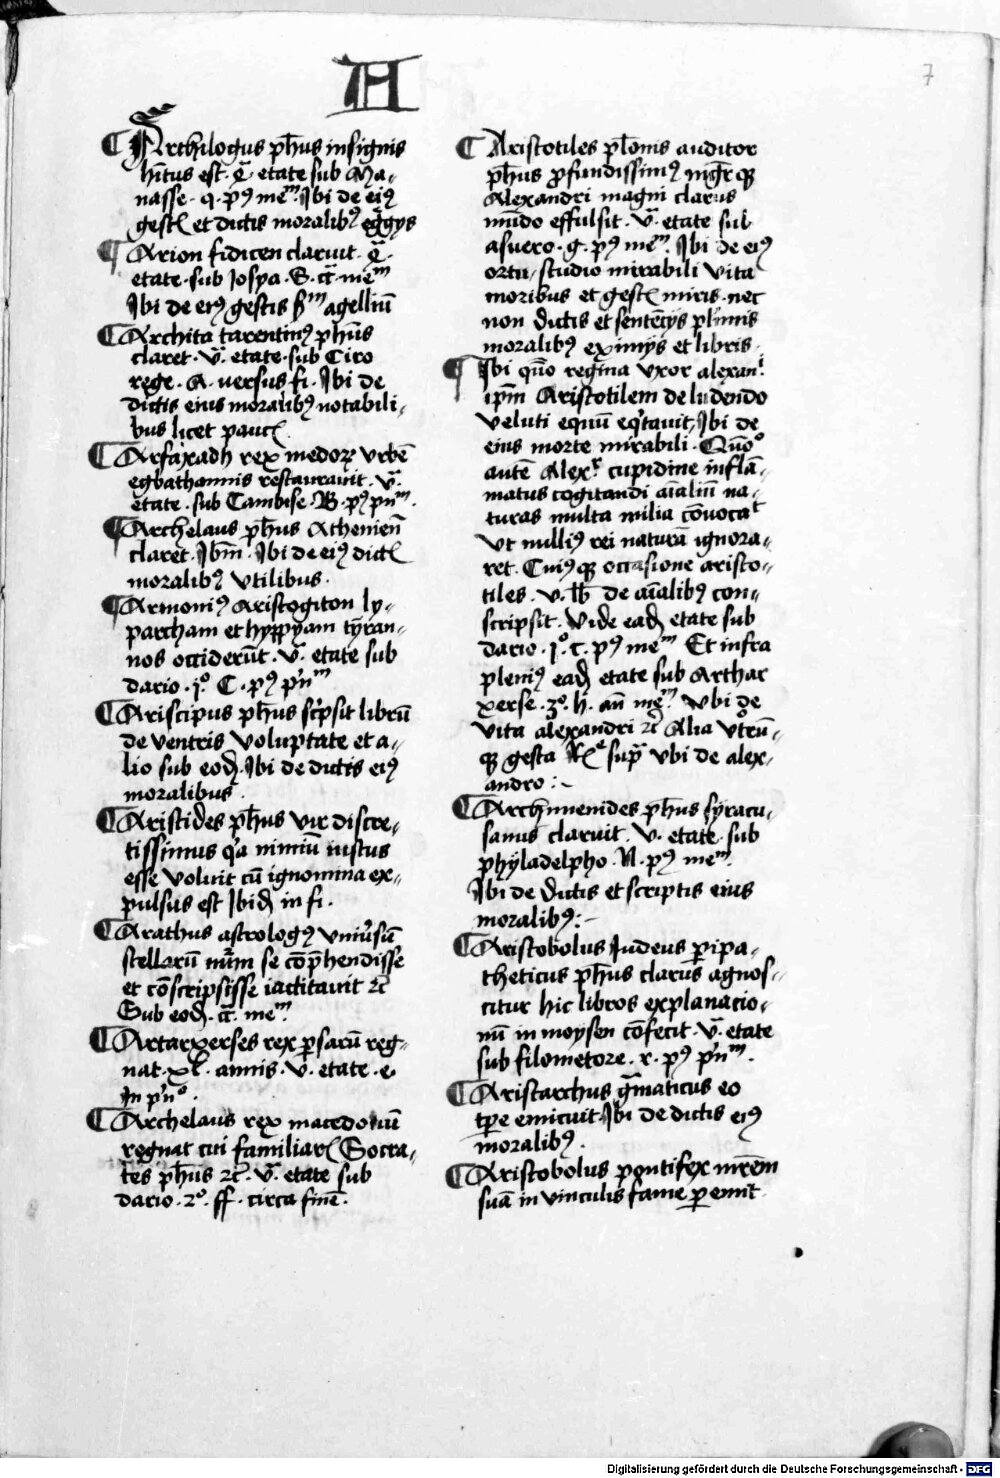 A
7
¶ Archilogus ph̄us insignis
hītus est. q̄ etate sub Ma-
nasse. q. pꝰ meᵐ. Ibi de eiꝰ
gestꝭ et dictis moralibꝰ
¶ Arion fidicen claruit. q̄.
etate. sub Josya.
Ibi de eiꝰ gestis sᵐ agelliū
¶ Archita tarentinꝰ ph̄us
claret. v̄. etate. sub Ciro
rege. A. versus fi. Ibi de
dictis eius moralibꝰ notabili-
bus licet paucꝭ
¶ Arfaxadh rex medoꝝ vrbē
egbathannis restaurauit. v̄.
etate. sub Cambise. B. pꝰ pnᵐ.
¶ Archelaus ph̄us Atheniēn
claret. Ibm̄. Ibi de eiꝰ dictꝭ
moralibꝰ vtilibus.
¶ Armoniꝰ Aristogiton ly-
parcham et hyppyam tyran-
nos occiderūt. v̄. etate sub
dario. jº. C. pꝰ pnᵐ
¶ Ariscipus ph̄us scpsit librū
de ventris voluptate et a-
lio sub eod. Ibi de dictis eiꝰ
moralibus.
¶ Aristides ph̄us vir discre-
tissimus qa nimiū iustus
esse voluit cū ignomina ex-
pulsus est Ibid in fi.
¶ Arathus astrologꝰ vniūsū
stellarū nūm se cōp̄hendisse
et cōscripsisse iactitauit ꝛc̄
Sub eod. meᵐ.
¶ Artarxerses rex ꝑsarū reg-
nat. xl. annis. v. etate. e
In pnº.
¶ Archelaus rex macedonū
regnat cui familiarꝭ Socra-
tes ph̄us ꝛc̄. v̄. etate sub
dario. 2º. ff. circa finē.
¶ Aristotiles platonis auditor
ph̄us ꝓfundissimꝰ mgr̄ qꝫ
Alexandri magni clarus
mūdo effulsit. v̄. etate sub
asuero. g. pꝰ meᵐ. Ibi de eiꝰ
ortu, studio mirabili vita
moribus et gestꝭ miris. nec
non dictis et sentēcijs plimis
moralibꝰ eximijs et libris.
¶ Ibi quō regina vxor alexanᵈ
ipm̄ Aristotilem deludendo
veluti equū eqtauit, Ibi de
eius morte mirabili. Quōº
autē Alexʳ cupidine inflā-
matus cogitandi aīaliū na-
turas multa milia cōuocaᵗ
vt nulliꝰ rei naturā ignora-
ret. Cuiꝰ qꝫ occasione aristo-
tiles. v. lb̄ de aīalibꝰ con-
scripsit. vide ead etate sub
dario. jº. c. pꝰ meᵐ Et infra
pleniꝰ ead etate sub Arthar
xerse. 3º. h. an̄ meᵐ. vbi de
vita alexandri ꝛc̄ Alia vtrū-
qꝫ gesta sup̄ vbi de alex-
andro :-
¶ Archimenides ph̄us syracu-
sanus claruit. v. etate. sub
phyladelpho. N. pꝰ meᵐ.
Ibi de dictis et scriptis eius
moralibꝰ :-
¶ Aristobolus Judeus ꝑipa-
theticus ph̄us clarus agnos-
citur hic libros explanacio-
nū in moysen cōfecit. v̄. etate
sub filometore. r. pꝰ pnᵐ.
¶ Aristarchus gm̄aticus eo
tꝑe emicuit. Ibi de dictis eiꝰ
moralibꝰ.
¶ Aristobolus pontifex mrēm
suā in vinculis fame ꝑemit.
Digitalisierung gefördert durch die Deutsche Forschungsgemeinschaft - DFG